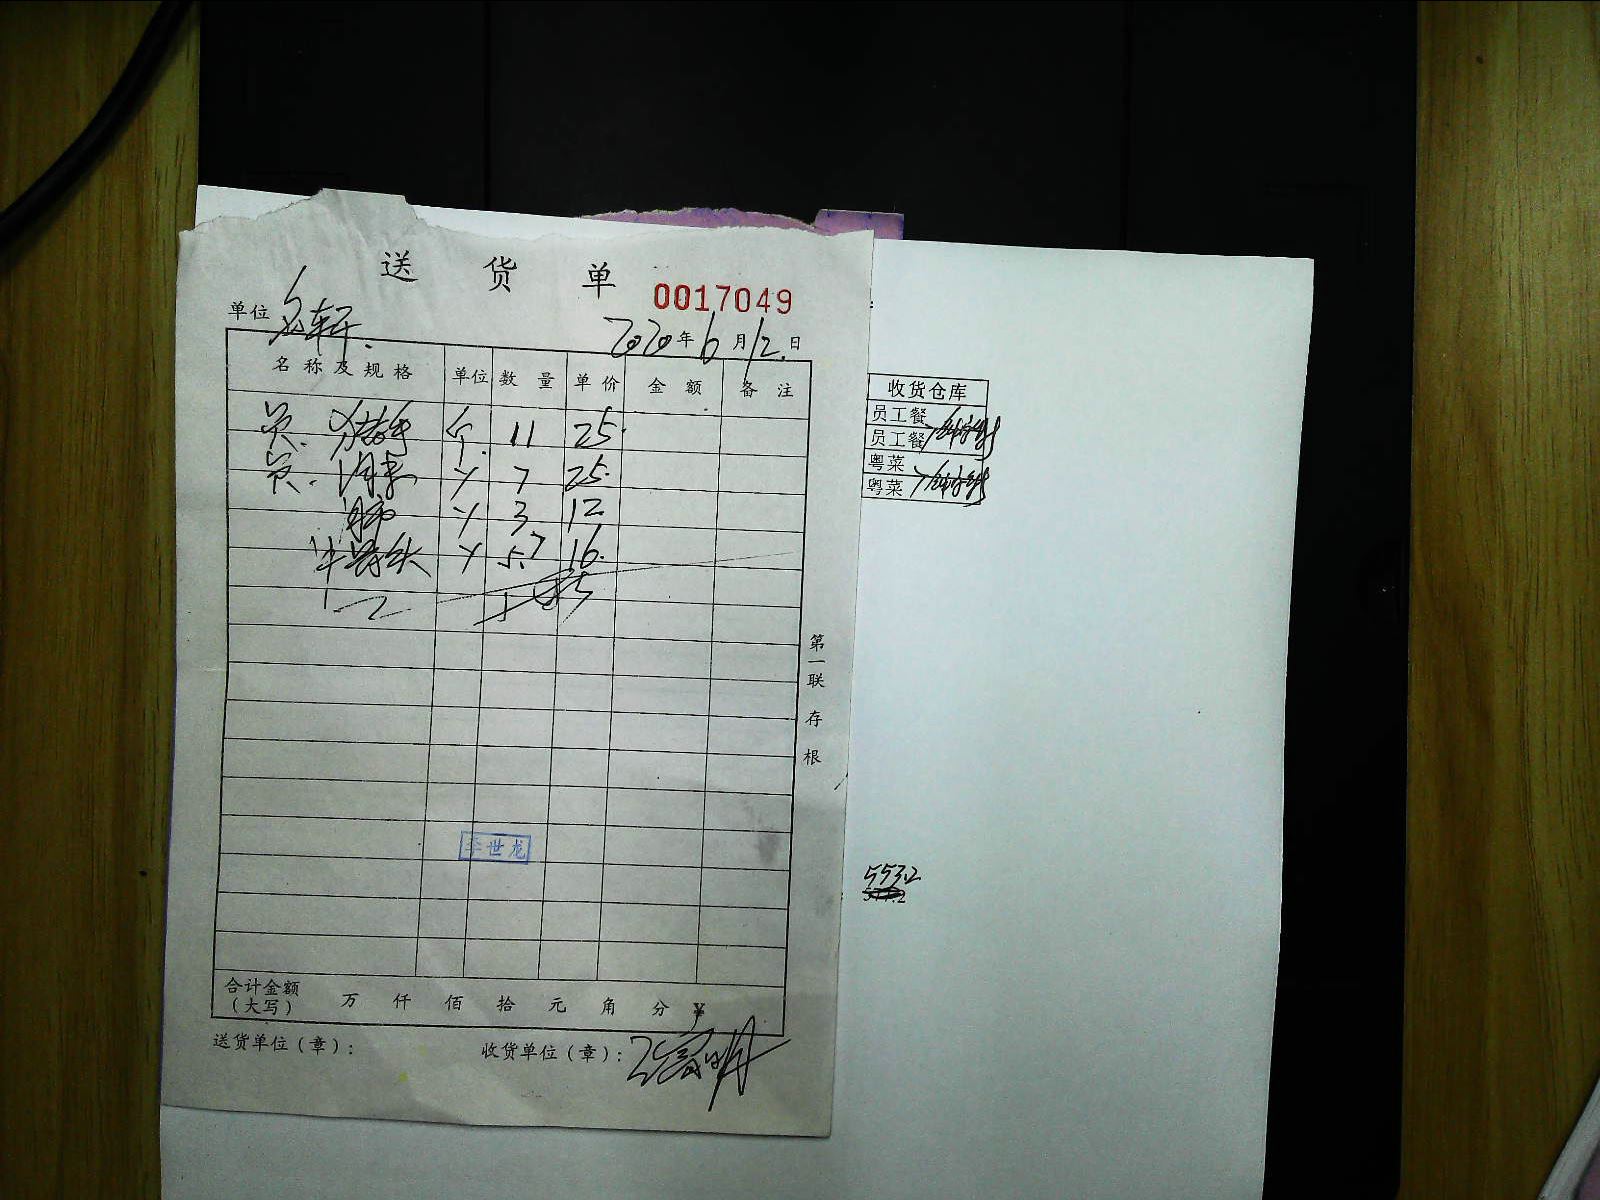 送 货 单
0017049
单位 名轩
2020年6月12日
名称及规格 单位 数量 单价 金额 备注
个 11 25
7 25
3 12
5.7 16
第一联 存根
李世龙
合计金额（大写） 万 仟 佰 拾 元 角 分 ¥
送货单位（章）： 收货单位（章）：
收货仓库
员工餐
员工餐
粤菜
粤菜
553.2